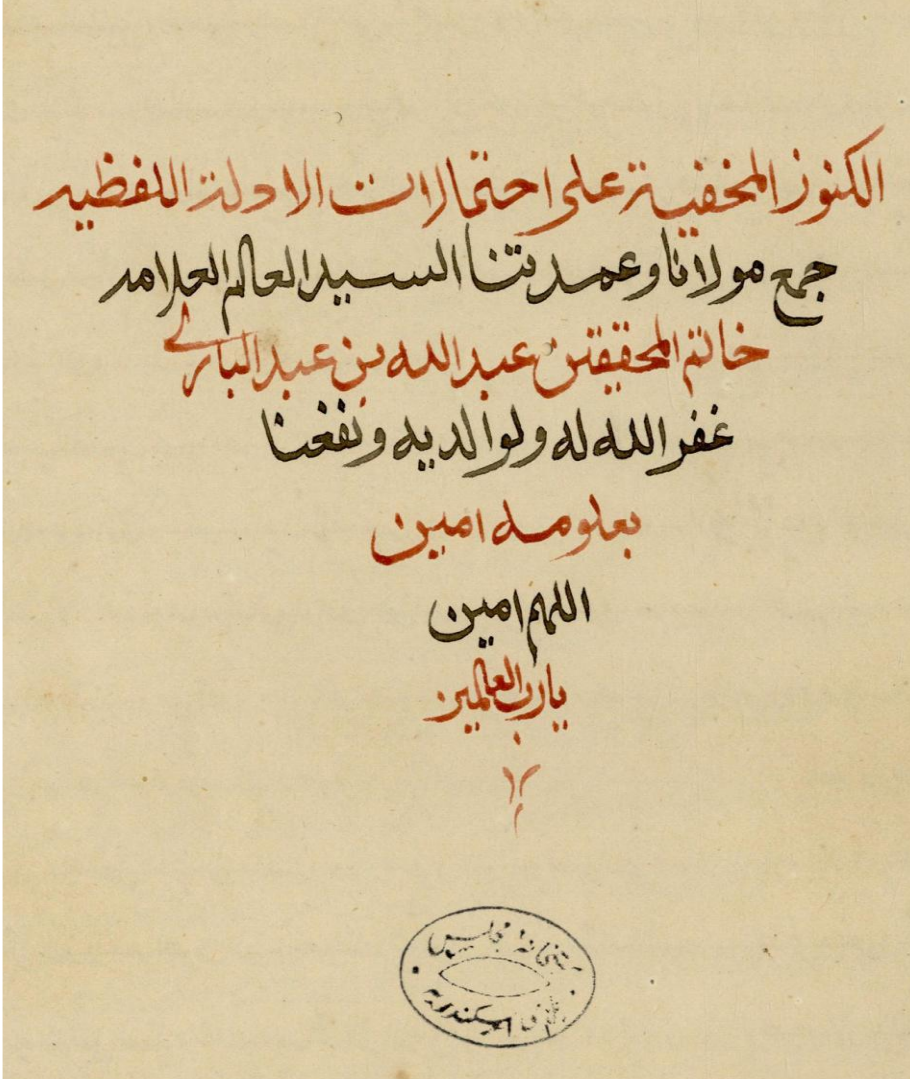 الكنوز المخفية على احتمالات الادلة اللفظيه
جمع مولانا وعمدتنا السيد العالم العلامه
خاتم المحققين عبدالله بن عبدالباري
غفر الله له ولوالديه ونفعنا
بعلومه امين
اللهم امين
يارب العالمين
كتبخانة مجلس
بلدي اسكندرية